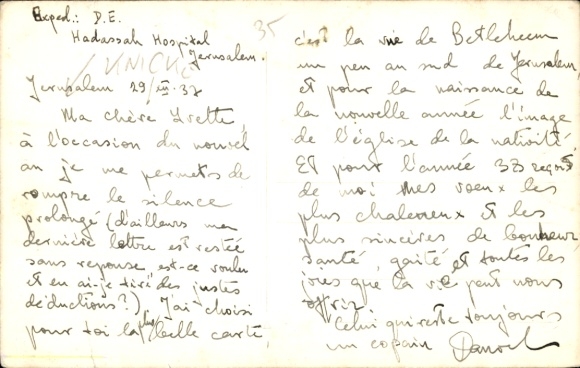 Exped.: D.E.
Hadassah Hospital
Jerusalem.
35
Jerusalem 29/XII.37
Ma chère Yvette,
à l'occasion du nouvel
an je me permets de
rompre le silence
prolongé (d'ailleurs ma
dernière lettre est restée
sans reponse, est-ce voulu
et en ai-je tiré des justes
déductions?) J'ai choisi
pour toi la plus belle carte
c'est la vue de Betlehem
un peu au sud de Jerusalem
et pour la naissance de
la nouvelle année l'image
de l'église de la nativité.
Et pour l'année 38 reçois
de moi mes voeux les
plus chaleureux et les
plus sincères de bonheur
santé, gaité et toutes les
joies que la vie peut nous
offrir
Celui qui reste toujours
un copain